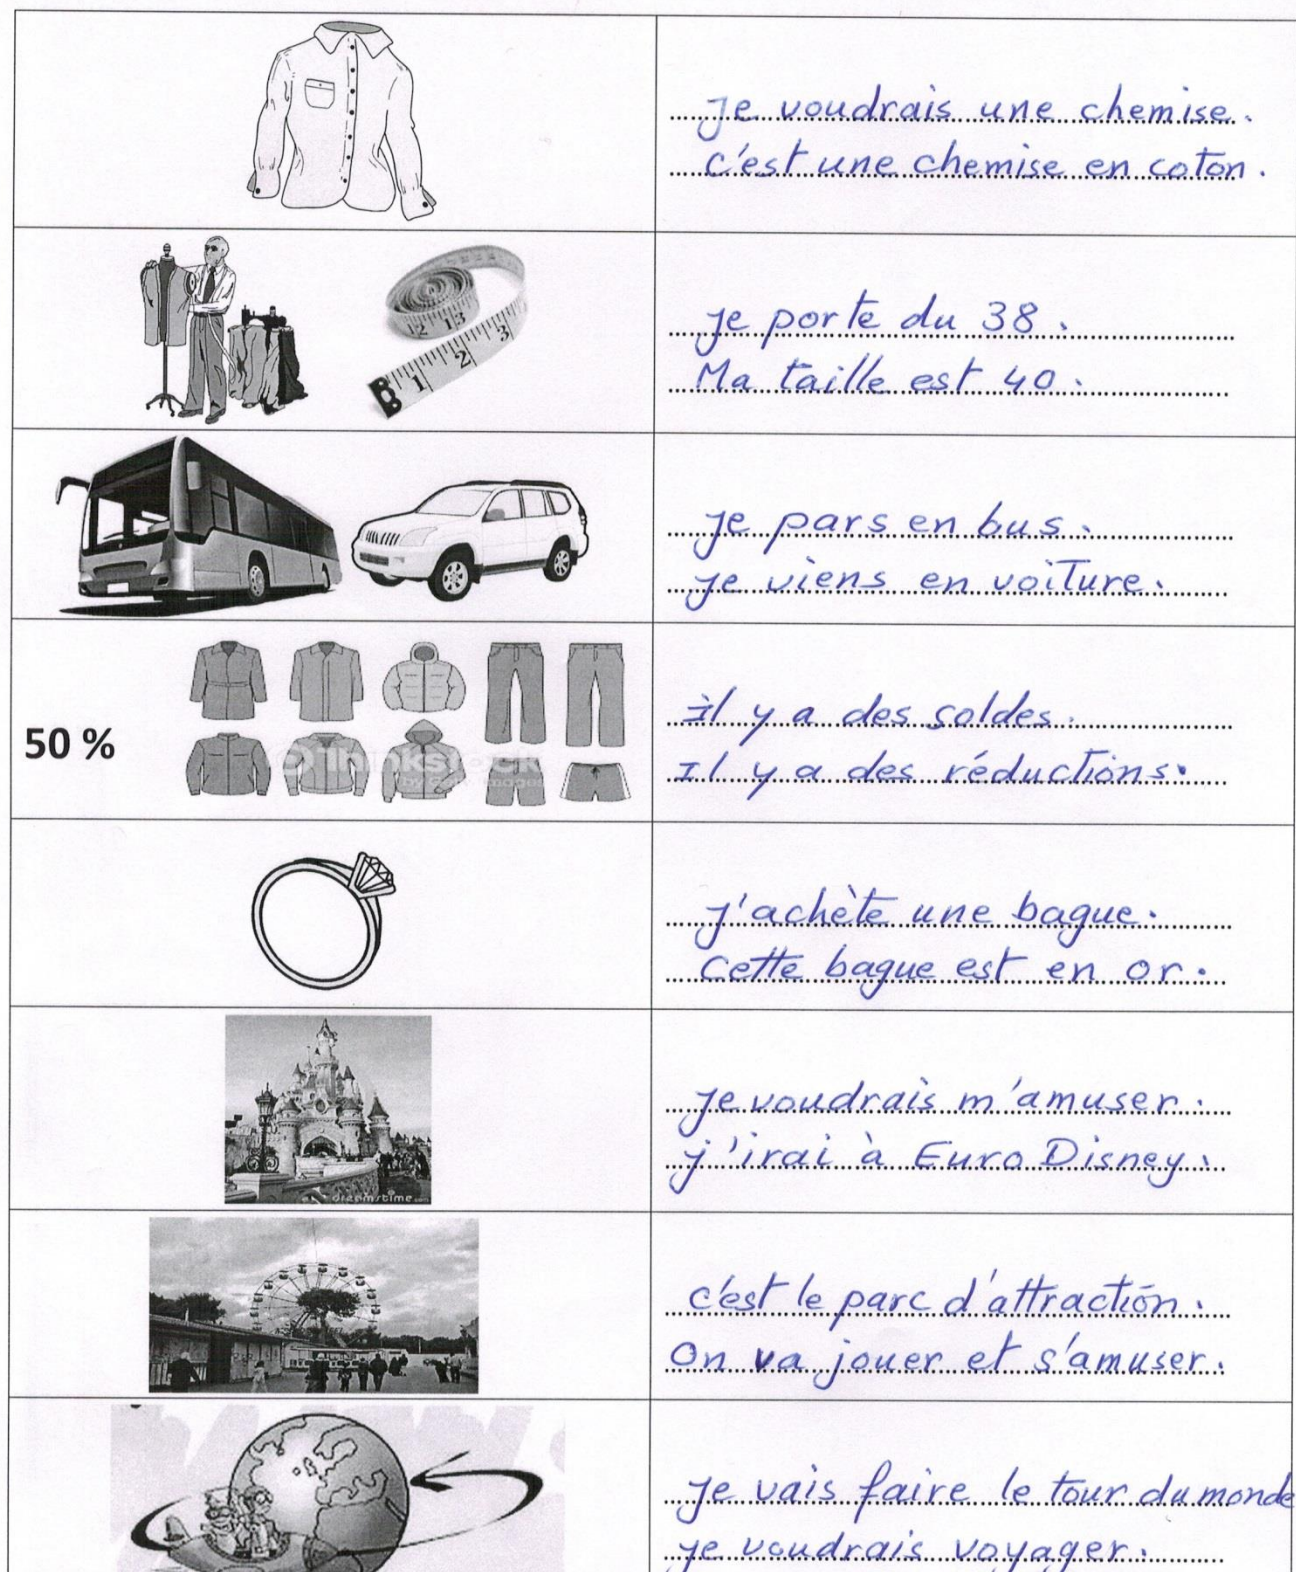 Je voudrais une chemise.
c'est une chemise en coton.
12 13
1 2 3
je porte du 38.
Ma taille est 40.
je pars en bus.
je viens en voiture.
50 %
il y a des soldes.
Il y a des réductions.
j'achète une bague.
cette bague est en or.
dreamstime
je voudrais m'amuser.
j'irai à Euro Disney.
c'est le parc d'attraction.
On va jouer et s'amuser.
je vais faire le tour du monde
je voudrais voyager.